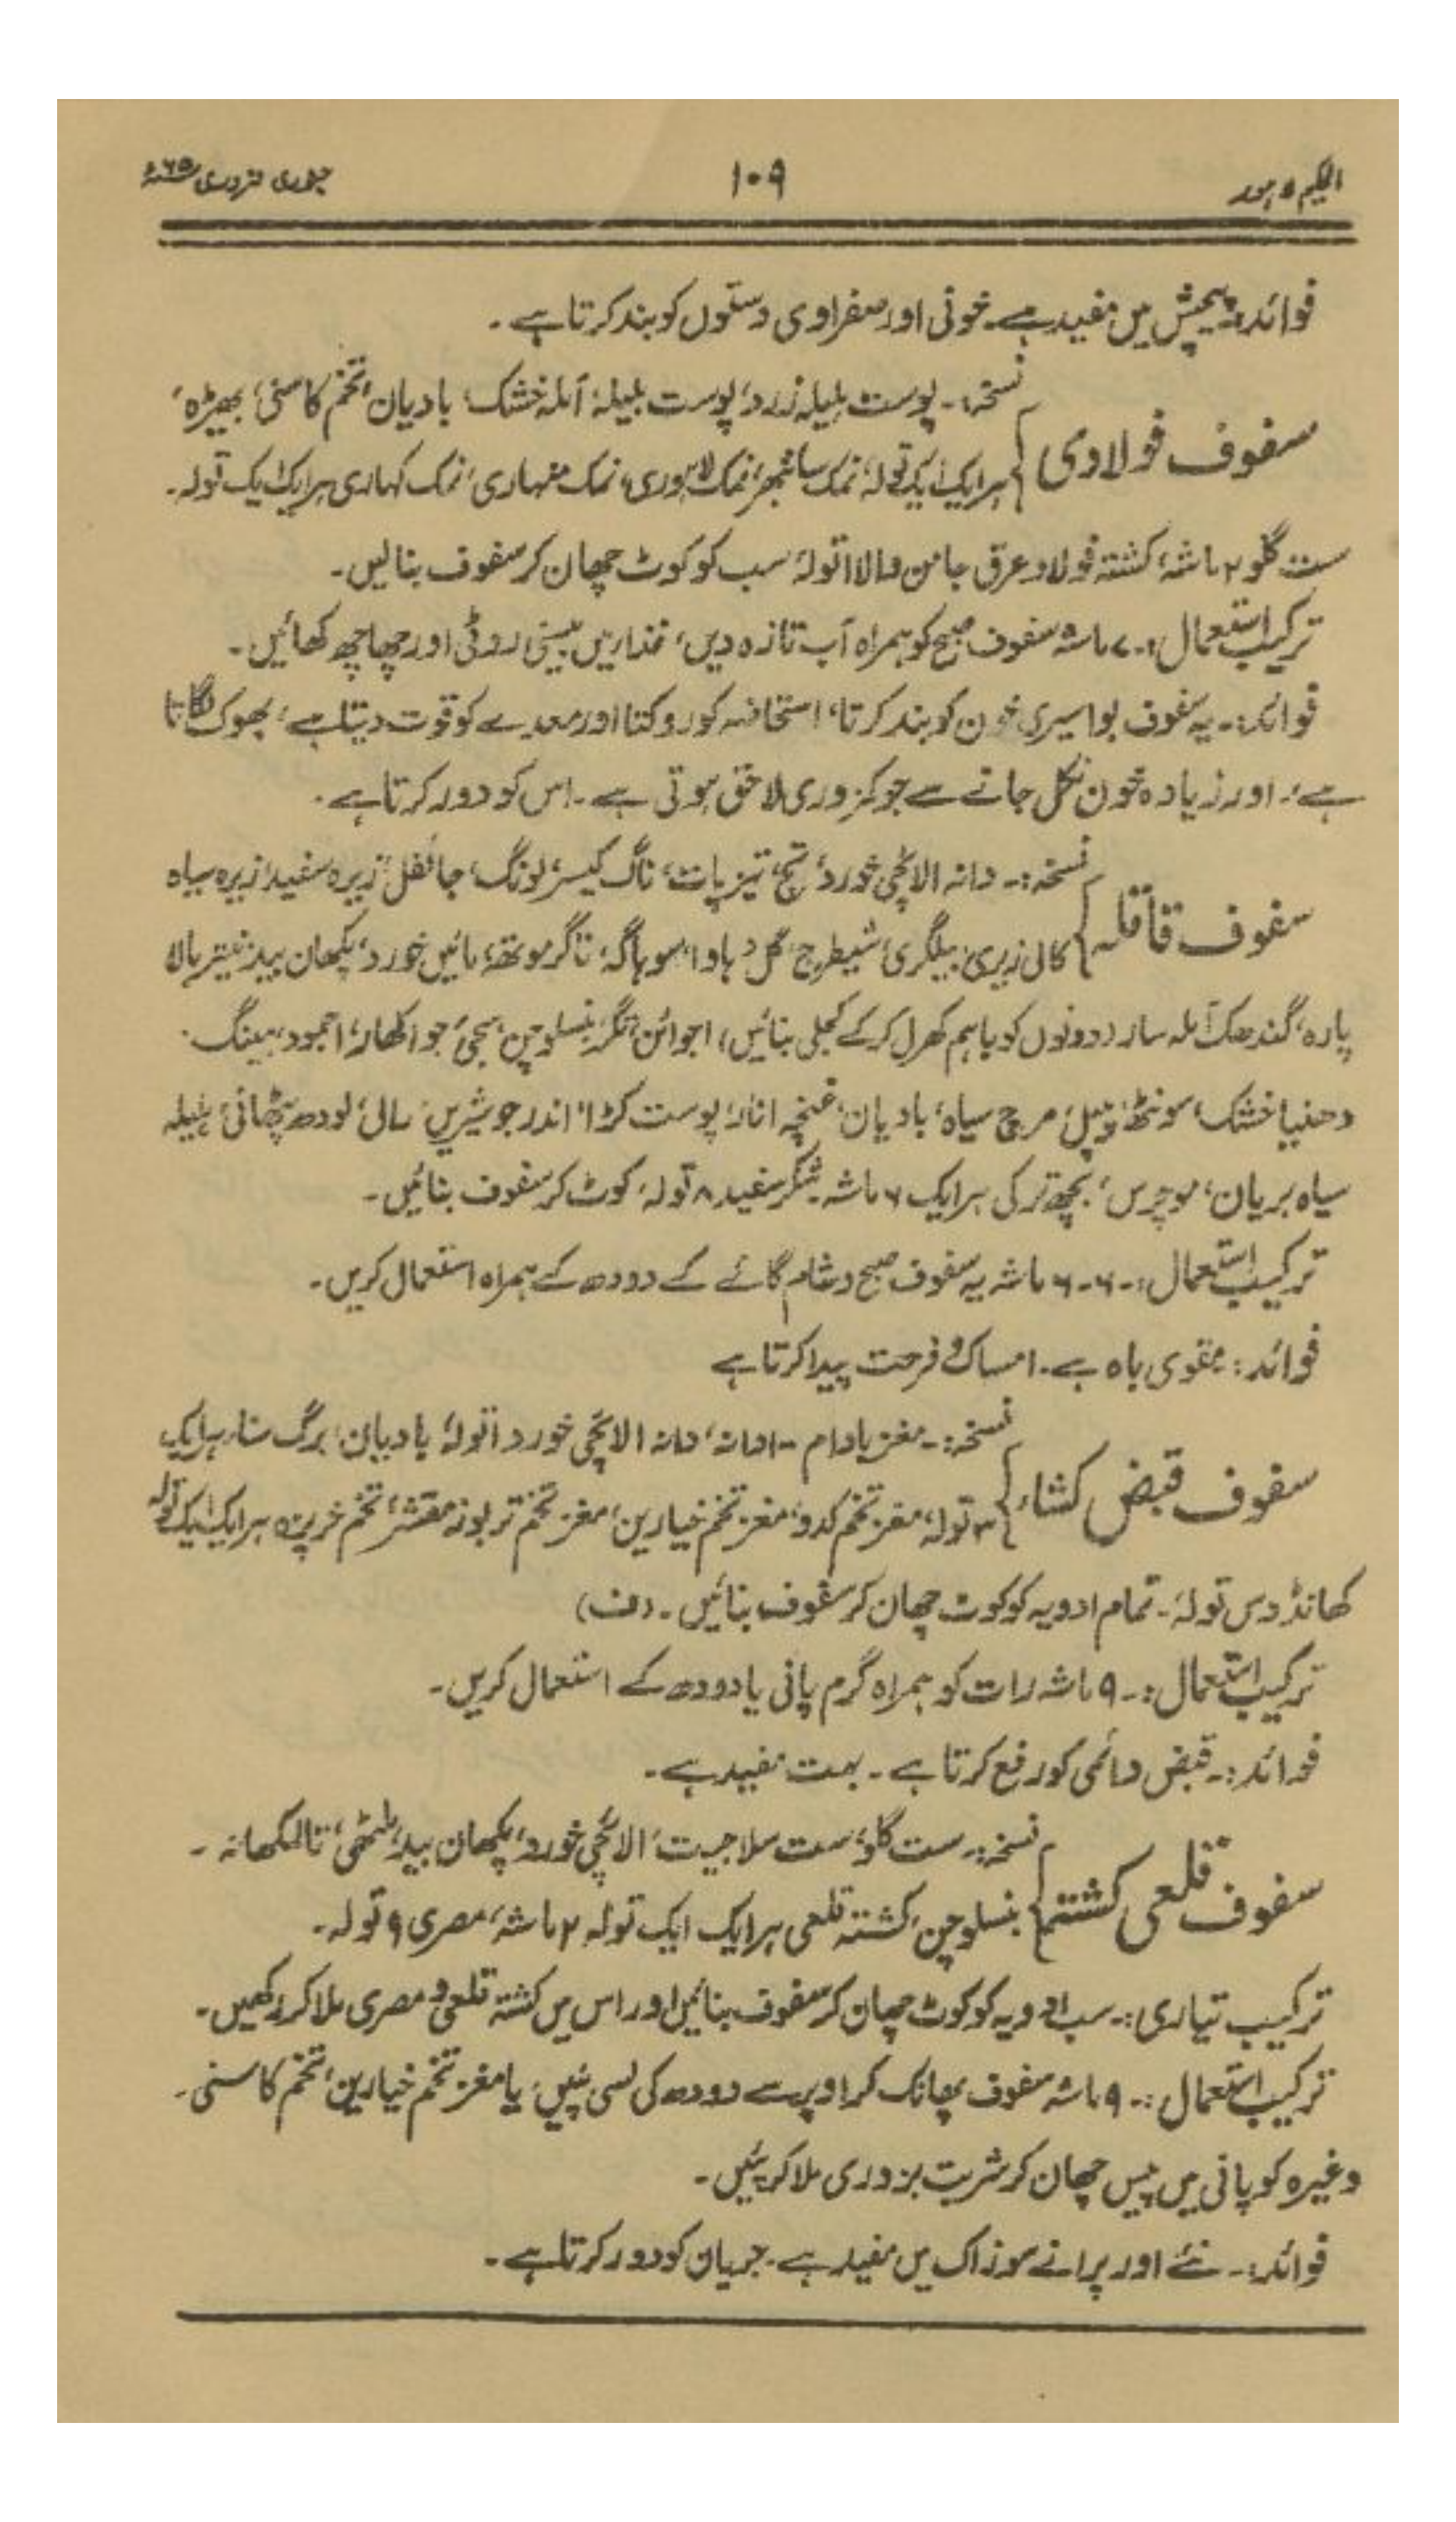 الحکیم لاہور ۱۰۹ جنوری فروری ۶۵ء
فوائد:۔ پیچش میں مفید ہے۔ خونی اور صفراوی دستوں کو بند کرتا ہے۔
سفوف فولادی
نسخہ:۔ پوست ہلیلہ زرد، پوست بلیلہ، آملہ خشک، بادیان، تخم کاسنی، بھیڑہ،
ہر ایک ایک تولہ، نمک سانبھر، نمک لاہوری، نمک منہاری، نمک کہاری ہر ایک ایک تولہ۔
ست گلو ۲ ماشہ، کشتہ فولاد عرق جامن والا ۱ تولہ، سب کو کوٹ چھان کر سفوف بنالیں۔
ترکیب استعمال:۔ ۷ ماشہ سفوف صبح کو ہمراہ آب تازہ دیں، غذا میں بیسنی روٹی اور چھاچھ کھائیں۔
فوائد:۔ یہ سفوف بواسیری خون کو بند کرتا، استحاضہ کو روکتا اور معدے کو قوت دیتا ہے، بھوک لگاتا
ہے، اور زیادہ خون نکل جانے سے جو کمزوری لاحق ہوتی ہے۔ اس کو دور کرتا ہے۔
سفوف قاقلہ
نسخہ:۔ دانہ الائچی خورد، تج، تیزپات، ناگ کیسر، لونگ، جائفل، زیرہ سفید، زیرہ سیاہ
کالی زیری، بیلگری، شیطرج، گل دہاوا، سوہاگہ، ناگرموتھہ، مائیں خورد، پکھان بید، نیتر بالا
پارہ، گندھک آملہ سار (دونوں کو باہم کھرل کرکے کجلی بنائیں)، اجوائن، تگر، بنسلوچن، سجی، جواکھار، اجمود، ہینگ۔
دھنیا خشک، سونٹھ، پیپل، مرچ سیاہ، بادیان، غنچہ انار، پوست کڑا، اندر جو شیریں، رالی، لودھ پٹھانی، ہلیلہ
سیاہ بریان، موچرس، بچھ ترکی ہر ایک ۶ ماشہ۔ شکر سفید ۸ تولہ، کوٹ کر سفوف بنائیں۔
ترکیب استعمال:۔ ۶۔۶ ماشہ یہ سفوف صبح و شام گائے کے دودھ کے ہمراہ استعمال کریں۔
فوائد: مقوی باہ ہے۔ امساک و فرحت پیدا کرتا ہے
سفوف قبض کشاء
نسخہ:۔ مغز بادام ۱۰ دانہ، دانہ الائچی خورد ۱ تولہ، بادیان، برگ سنا، ہر ایک
۳ تولہ، مغز تخم کدو، مغز تخم خیارین، مغز تخم تربوز مقشر، تخم خرپزہ ہر ایک ایک تولہ
کھانڈ دس تولہ۔ تمام ادویہ کو کوٹ چھان کر سفوف بنائیں۔ (ف)
ترکیب استعمال:۔ ۹ ماشہ رات کو ہمراہ گرم پانی یا دودھ کے استعمال کریں۔
فوائد:۔ قبض دائمی کو رفع کرتا ہے۔ بہت مفید ہے۔
سفوف قلعی کشتہ
نسخہ:۔ ست گلو، ست سلاجیت، الائچی خورد، پکھان بید، ملٹھی، تالمکھانہ۔
بنسلوچن، کشتہ قلعی ہر ایک ایک تولہ ۲ ماشہ، مصری ۹ تولہ۔
ترکیب تیاری:۔ سب ادویہ کو کوٹ چھان کر سفوف بنائیں اور اس میں کشتہ قلعی و مصری ملا کر رکھیں۔
ترکیب استعمال:۔ ۹ ماشہ سفوف پھانک کر اوپر سے دودھ کی لسی پئیں، یا مغز تخم خیارین، تخم کاسنی۔
وغیرہ کو پانی میں پیس چھان کر شربت بزوری ملا کر پئیں۔
فوائد:۔ نئے اور پرانے سوزاک میں مفید ہے۔ جریان کو دور کرتا ہے۔